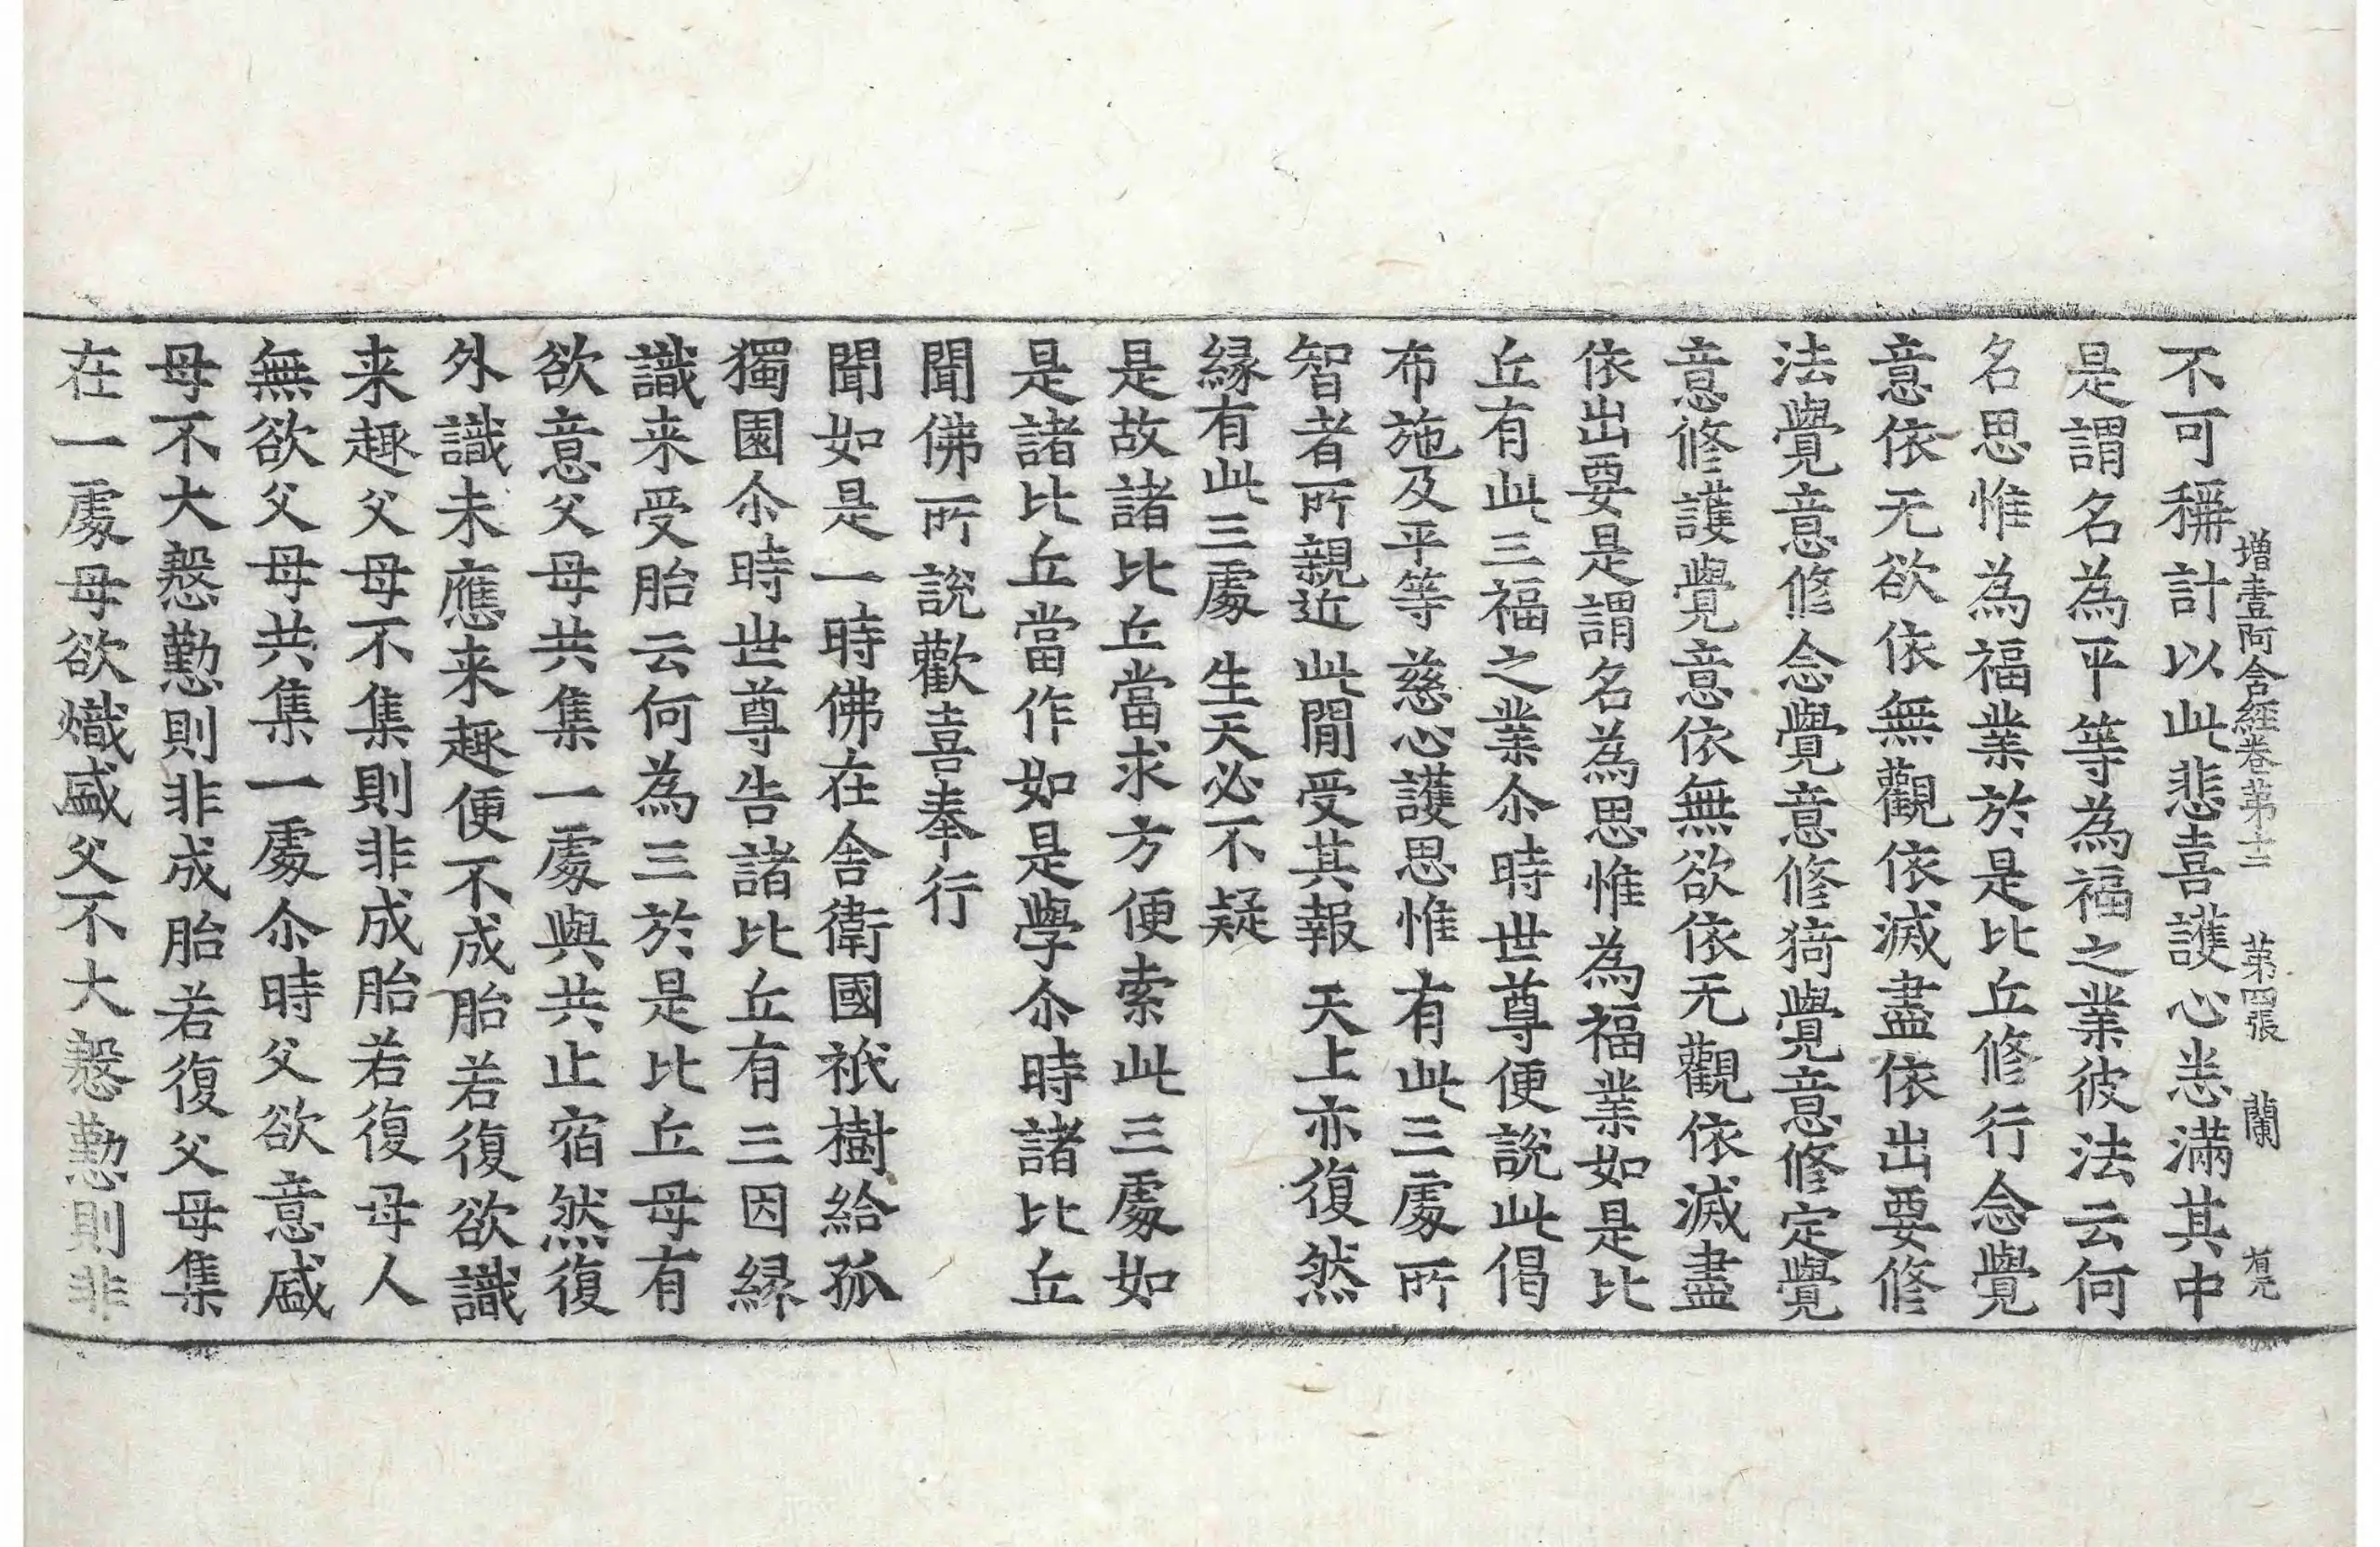 增壹阿含經卷第十二　第四張　蘭
不可稱計以此悲喜護心悉滿其中
是謂名為平等為福之業彼法云何
名思惟為福業於是比丘修行念覺
意依无欲依無觀依滅盡依出要修
法覺意修念覺意修猗覺意修定覺
意修護覺意依無欲依无觀依滅盡
依出要是謂名為思惟為福業如是比
丘有此三福之業尒時世尊便說此偈
布施及平等　慈心護思惟　有此三處所
智者所親近　此閒受其報　天上亦復然
緣有此三處　生天必不疑
是故諸比丘當求方便索此三處如
是諸比丘當作如是學尒時諸比丘
聞佛所說歡喜奉行
聞如是一時佛在舍衛國祇樹給孤
獨園尒時世尊告諸比丘有三因緣
識来受胎云何為三於是比丘母有
欲意父母共集一處與共止宿然復
外識未應来趣便不成胎若復欲識
来趣父母不集則非成胎若復母人
無欲父母共集一處尒時父欲意盛
母不大慇懃則非成胎若復父母集
在一處母欲熾盛父不大慇懃則非